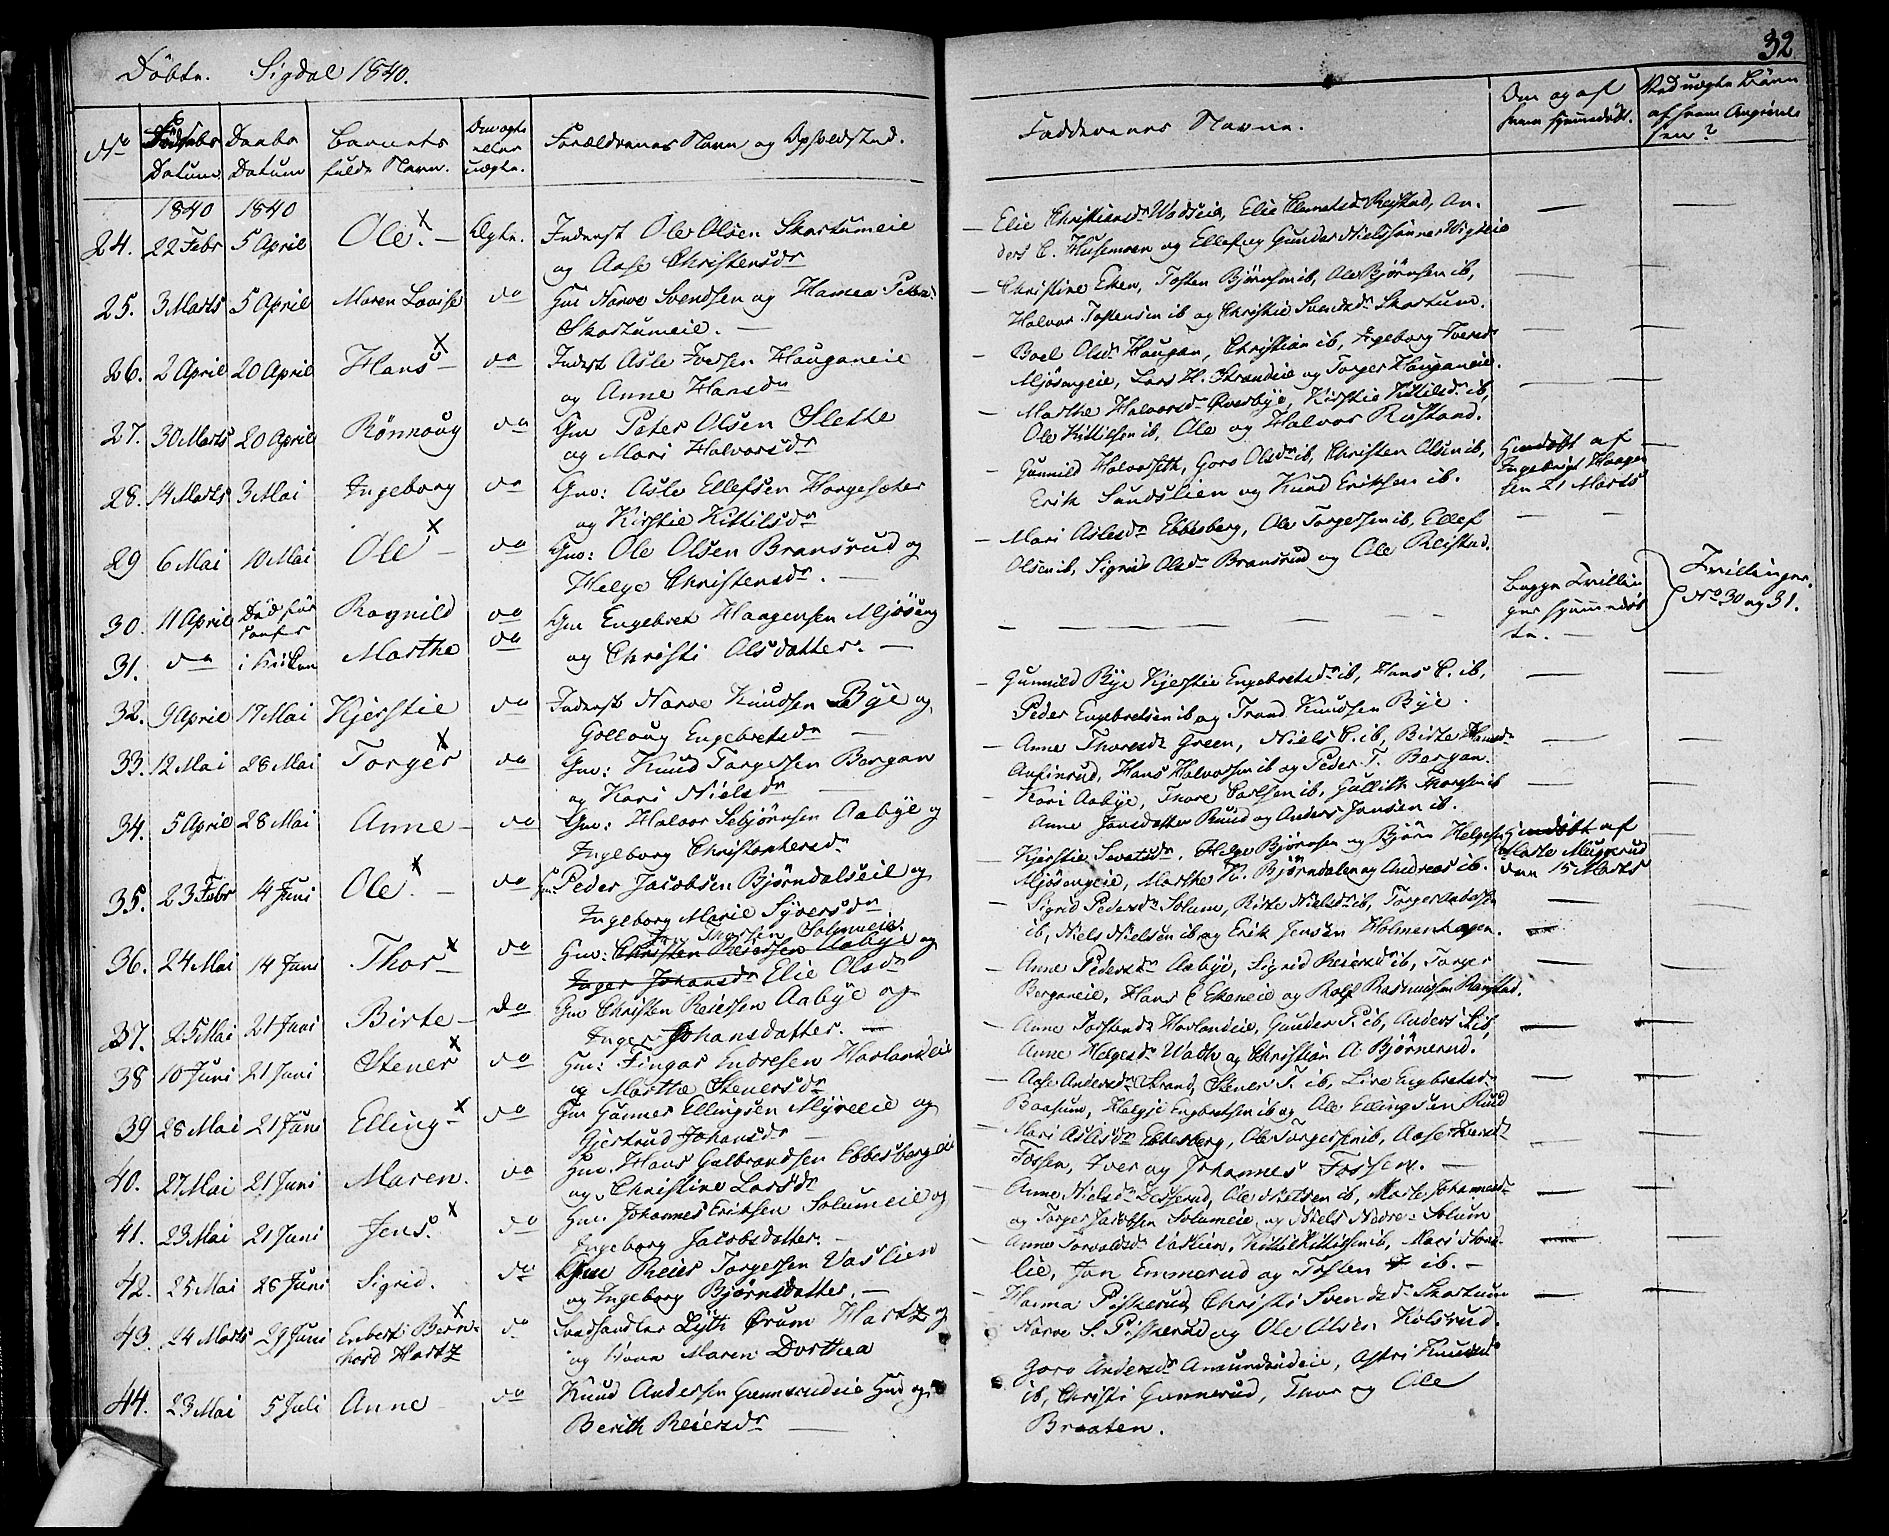 Döbte. Sigdal 1840.
32.
No
Födsels Datum
Daabs Datum
Barnets fulde Navn.
Om ægte eller uægte.
Forældrenes Navn og Opholdsted.
Faddernes Navne.
Om og af hvem hjemmedöbt.
Ved uægte Börn af hvem Angivelsen?
1840 1840
24. 22 Febr 5 April Ole. x – Ægte. Inderst Ole Olsen Skartumeie
og Aase Christensdr
– Elie Christiansdr Wadseie, Elie Clemetsd Reistad, An-
ders C. Husemoen og Ellef og Gunder Nielssönner Wigseie
25. 3 Marts 5 April Maren Lovise do Gm Narve Svendsen og Hanna Peters
Skartumeie. –
– Christine Eken, Tosten Björnsen ib, Ole Björnsen ib,
Halvor Tostensen ib og Christie Svendsdr Skartum.
26. 2 April 20 April Hans x – do Inderst Asle Iversen Hauganeie
og Anne Hansdr
– Boel Olsdr Haugan, Christian ib, Ingeborg Iversdr
Mjösengeie, Lars H. Strandeie og Torger Hauganeie.
27. 30 Marts 20 April Rönnoug do Gm Peter Olsen Slette
og Mari Halvorsdr
– Marthe Halvorsdr Överbye, Kirstie Kittilsdr ib,
Ole Kittilsen ib, Ole og Halvor Rustand.
28. 14 Marts 3 Mai Ingeborg do Gm: Asle Ellefsen Horgesæter
og Kirstie Kittilsdr
– Gunnild Halvorseth, Goro Olsdr ib, Christen Olsen ib,
Erik Sandslien og Knud Eriksen ib.
Hjemdöbt af
Ingebrigt Haagen
sen 21 Marts
29 6 Mai 10 Mai Ole x – do Gm: Ole Olsen Bransrud og
Helge Christensdr. –
– Mari Aslesdr Ebbesberg, Ole Torgersen ib, Ellef
Olsen ib, Sigrid Olsdr Bransrud og Ole Reistad.
30. 11 April Död för Ragnild do Gm Engebret Haagensen Mjösung
31. do i Kirken Marthe do og Christi Olsdatter. –
Begge Tvillin
ger hjemmedöb
te. –
Tvillinger.
No 30 og 31.
32. 9 April 17 Mai Kjerstie do Inderst Narve Knudsen Bye og
Gollaug Engebretsdr
– Gunnild Bye Kjerstie Engebretsdr ib, Hans C. ib,
Peder Engebretsen ib og Trond Knudsen Bye.
33. 12 Mai 28 Mai Torger x do Gm: Knud Torgersen Bergan
og Kari Nielsdr
– Anne Thoresdr Green, Niels C. ib, Birte Hansdr
Anfinrud, Hans Halvorsen ib og Peder T. Bergan.
34. 5 April 28 Mai Anne – do Gm: Halvor Sebjörnsen Aabye og
Ingeborg Christophersdr
– Kari Aabye, Thore Carlsen ib, Gullik Thoresen ib
Anne Jansdatter Ruud og Anders Jansen ib.
35. 23 Febr 14 Juni Ole. x – do Gm: Peder Jacobsen Björndalseie og
Ingeborg Marie Syversdr
– Kjerstie Sivertsdr, Helge Björnsen og Björn Helgesen
Mjösengeie, Marthe K. Björndalen og Andreas ib.
Hjemdöbt af
Marte Muggerud
den 15 Marts
36. 24 Mai 14 Juni Thor x – do Gm: Thorsen Solumeie.
Christen Reiersen Aabye og
Inger Johansdr Elie Olsdr
– Sigrid Pedersdr Solum, Birte Nielsdr ib, Torger
ib, Niels Nielsen ib og Erik Jensen Holmenhagen.
37. 25 Mai 21 Juni Birte – do Gm Christen Reiersen Aabye og
Inger Johansdatter. –
– Anne Pedersdr Aabye, Sigrid Reiersdr ib, Torger
Berganeie, Hans E Ekeneie og Rolf Rasmussen Ramstad.
38 10 Juni 21 Juni Stener x do Gm: Fingar Endresen Havlandseie
og Marthe Stenersdr
– Anne Torstensdr Havlandeie, Gunder P. ib, Anders S. ib,
Anne Helgesdr Wadh og Christian A. Björnerud.
39 28 Mai 21 Juni Elling x do Gm Gunner Ellingsen Myreeie og
Gjertrud Johansdr –
– Aase Andersdr Strand, Stener T. ib, Live Engbretsdr
Baasum, Helge Engbretsen ib og Ole Ellingsen Ruud
40. 27 Mai 21 Juni Maren. do Gm. Hans Gulbrandsen Ebbesbergeie
og Christine Larsdr
– Mari Aslesdr Ebbesberg, Ole Torgersen ib, Aase Iversdr
Fossen, Iver og Johannes Fossen. –
41. 23 Mai 21 Juni Jens. x do Gm. Johannes Eriksen Solumeie og
Ingeborg Jacobsdatter. –
– Anne Nielsdr Zesserud, Ole Nielsen ib, Marte Johannesdr
og Torger Jacobsen Solumeie og Niels Nedre Solum
42. 25 Mai 28 Juni Sigrid. do Gm Reier Torgersen Vaslien
og Ingeborg Björnsdatter. –
– Anne Torvaldsdr Vaslien, Kittil Kittilsen ib, Mari Strand
lie, Jan Emmerud og Tosten T ib. –
43. 24 Marts 29 Juni Enbert Bern- x
hard Hartz do Landhandler Lyth Örum Hartz og
og Kone Maren Dorthea
– Hanna Piskerud, Christi Svendsd Skartum
Narve S. Piskerud og Ole Olsen Kolsrud.
44. 23 Mai 5 Juli Anne do Knud Andersen Gunnerudeie Gm og
Berith Reiersdr –
Goro Andersdr Amundrudeie, Astri Knudsd
ib, Christi Gunnerud, Thor og Ole
Braaten.